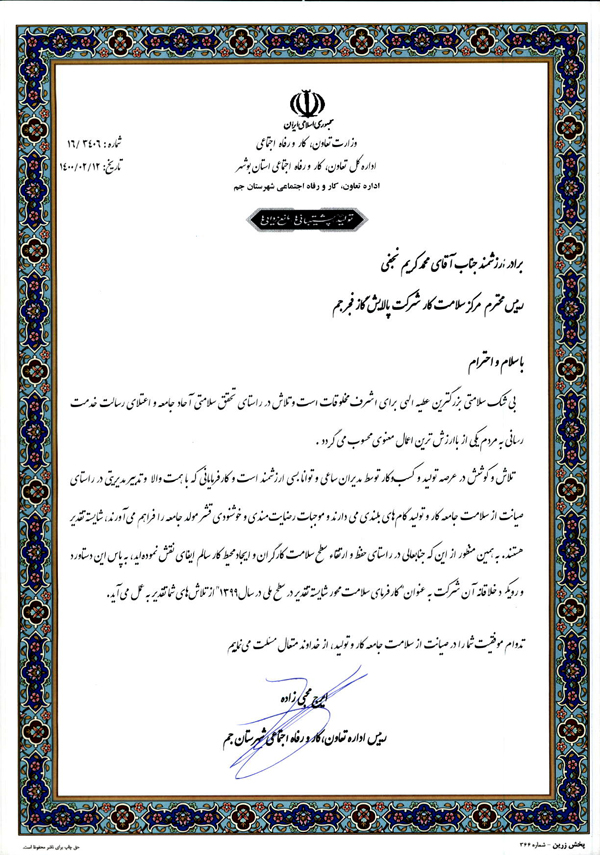 جمهوری اسلامی ایران
وزارت تعاون، کار و رفاه اجتماعی
اداره کل تعاون، کار و رفاه اجتماعی استان بوشهر
اداره تعاون، کار و رفاه اجتماعی شهرستان جم
شماره : ۱۶/۳۴۰۶
تاریخ: ۱۴۰۰/۰۲/۱۲
تولید؛ پشتیبانی‌ها، مانع‌زدایی‌ها
برادر ارزشمند جناب آقای محمدکریم نجفی
رییس محترم مرکز سلامت کار شرکت پالایش گاز فجر جم
باسلام و احترام
بی شک سلامتی بزرگترین عطیه الهی برای اشرف مخلوقات است و تلاش در راستای تحقق سلامتی آحاد جامعه و اعتلای رسالت خدمت
رسانی به مردم یکی از باارزش ترین اعمال معنوی محسوب می گردد .
تلاش و کوشش در عرصه تولید و کسب و کار توسط مدیران ساعی و توانا بسی ارزشمند است و کارفرمایانی که با همت والا و تدبیر مدیریتی در راستای
صیانت از سلامت جامعه کار و تولید گام های بلندی می دارند و موجبات رضایت مندی و خوشنودی قشر مولد جامعه را فراهم می آورند، شایسته تقدیر
هستند. به همین منظور از این که جنابعالی در راستای حفظ و ارتقاء سطح سلامت کارگران و ایجاد محیط کار سالم ایفای نقش نموده اید، به پاس این دستاورد
و رویکرد خلاقانه آن شرکت به عنوان "کارفرمای سلامت محور شایسته تقدیر در سطح ملی در سال ۱۳۹۹" از تلاش های شما تقدیر به عمل می آید.
تداوم موفقیت شما را در صیانت از سلامت جامعه کار و تولید، از خداوند متعال مسئلت می نماییم
ایرج محبی زاده
رییس اداره تعاون، کار و رفاه اجتماعی شهرستان جم
پخش زرین - شماره ۳۶۶
حق چاپ برای ناشر محفوظ است.